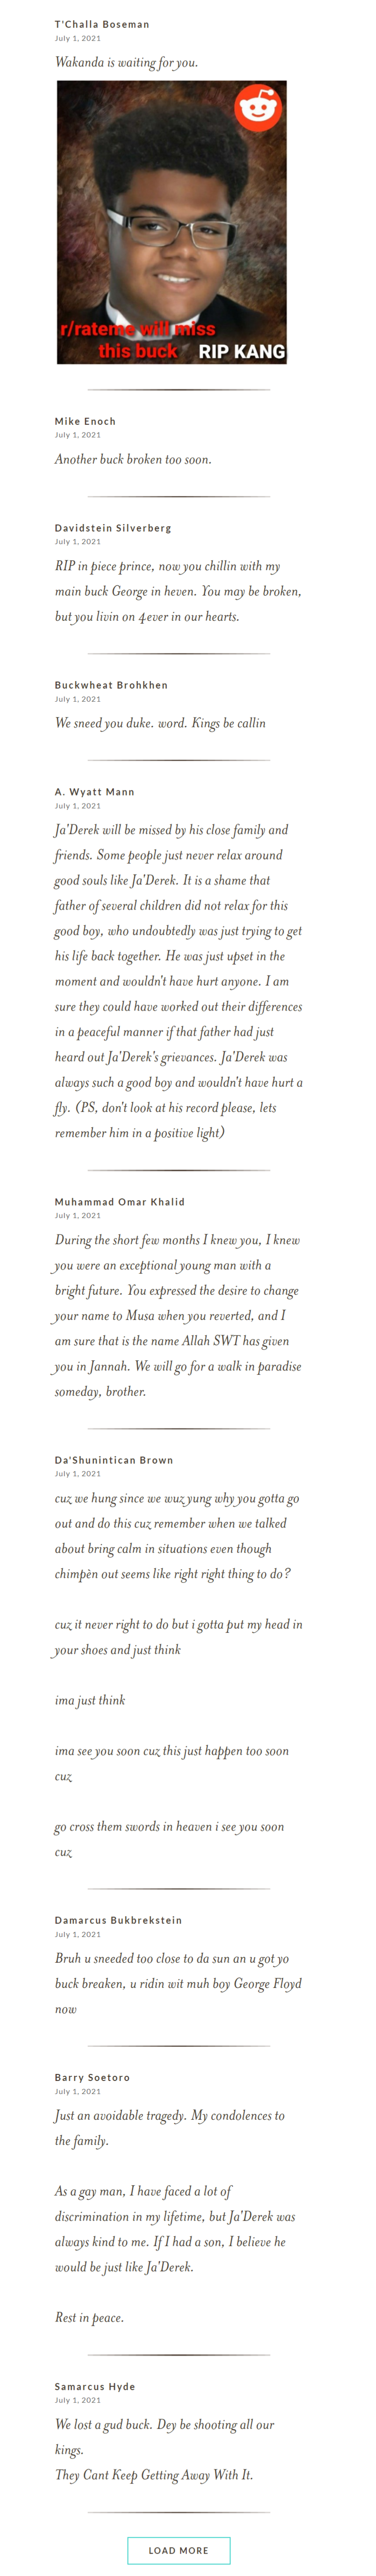 T'Challa Boseman
July 1, 2021
Wakanda is waiting for you.
r/rateme will miss
this buck
RIP KANG
Mike Enoch
July 1, 2021
Another buck broken too soon.
Davidstein Silverberg
July 1, 2021
RIP in piece prince, now you chillin with my
main buck George in heven. You may be broken,
but you livin on 4ever in our hearts.
Buckwheat Brohkhen
July 1, 2021
We sneed you duke. word. Kings be callin
A. Wyatt Mann
July 1, 2021
Ja'Derek will be missed by his close family and
friends. Some people just never relax around
good souls like Ja'Derek. It is a shame that
father of several children did not relax for this
good boy, who undoubtedly was just trying to get
his life back together. He was just upset in the
moment and wouldn't have hurt anyone. I am
sure they could have worked out their differences
in a peaceful manner if that father had just
heard out Ja'Derek's grievances. Ja'Derek was
always such a good boy and wouldn't have hurt a
fly. (PS, don't look at his record please, lets
remember him in a positive light)
Muhammad Omar Khalid
July 1, 2021
During the short few months I knew you, I knew
you were an exceptional young man with a
bright future. You expressed the desire to change
your name to Musa when you reverted, and I
am sure that is the name Allah SWT has given
you in Jannah. We will go for a walk in paradise
someday, brother.
Da'Shunintican Brown
July 1, 2021
cuz we hung since we wuz yung why you gotta go
out and do this cuz remember when we talked
about bring calm in situations even though
chimpèn out seems like right right thing to do?
cuz it never right to do but i gotta put my head in
your shoes and just think
ima just think
ima see you soon cuz this just happen too soon
cuz
go cross them swords in heaven i see you soon
cuz
Damarcus Bukbrekstein
July 1, 2021
Bruh u sneeded too close to da sun an u got yo
buck breaken, u ridin wit muh boy George Floyd
now
Barry Soetoro
July 1, 2021
Just an avoidable tragedy. My condolences to
the family.
As a gay man, I have faced a lot of
discrimination in my lifetime, but Ja'Derek was
always kind to me. If I had a son, I believe he
would be just like Ja'Derek.
Rest in peace.
Samarcus Hyde
July 1, 2021
We lost a gud buck. Dey be shooting all our
kings.
They Cant Keep Getting Away With It.
LOAD MORE